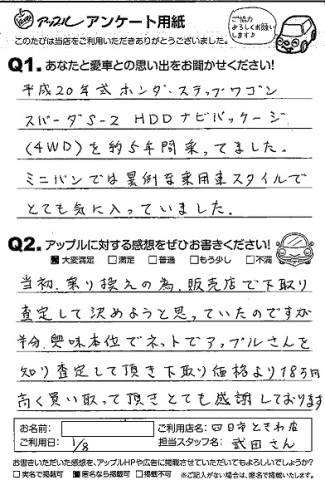 アップル アンケート用紙
ご協力
よろしくお願い
します♪
このたびは当店をご利用いただきありがとうございました。
Q1. あなたと愛車との思い出をお聞かせください!
平成20年式ホンダ・ステップワゴン
スパーダS-Z HDDナビパッケージ
(4WD)を約5年間乗ってました。
ミニバンでは異例な乗用車スタイルで
とても気に入っていました。
Q2. アップルに対する感想をぜひお書きください!
■大変満足 □満足 □普通 □もう少し □不満
当初、乗り換えの為、販売店で下取り
査定して決めようと思っていたのですが
半分、興味本位でネットでアップルさんを
知り査定して頂き下取り価格より18万円
高く買い取って頂きとても感謝しております
お名前: ご利用店名: 四日市ときわ店
ご利用日: 1/8 担当スタッフ名: 武田さん
お書きいただいた感想を、アップルHPや広告に掲載させていただいてもよろしいでしょうか?
□実名で掲載可 ■匿名なら掲載可 □掲載不可 ※ご記入がない場合は、匿名で掲載いたします。